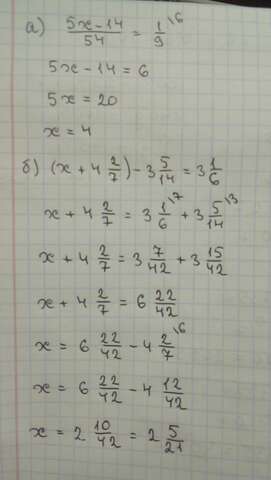 а) (5x-14)/54 = 1/9 \6
5x - 14 = 6
5x = 20
x = 4
б) (x + 4 2/7) - 3 5/14 = 3 1/6
x + 4 2/7 = 3 1/6 \7 + 3 5/14 \3
x + 4 2/7 = 3 7/42 + 3 15/42
x + 4 2/7 = 6 22/42
x = 6 22/42 - 4 2/7 \6
x = 6 22/42 - 4 12/42
x = 2 10/42 = 2 5/21